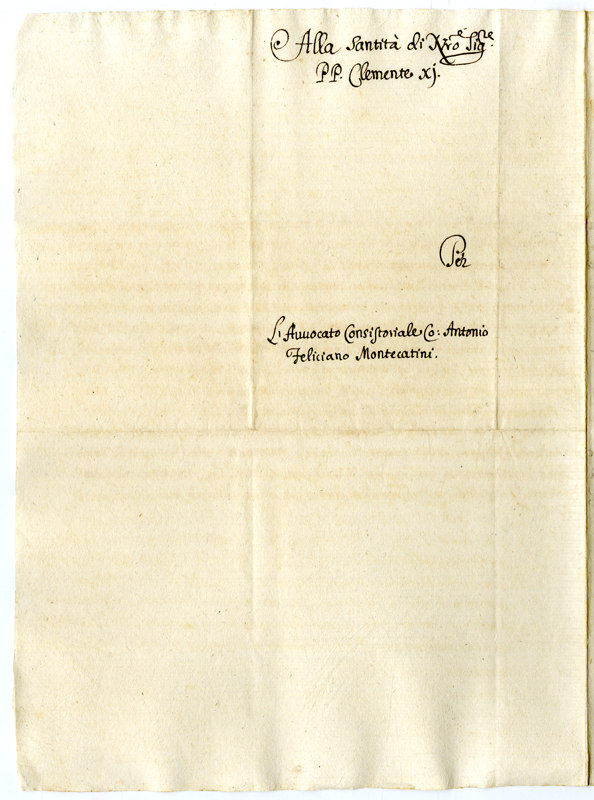 Alla Santità di Nro Sigre.
PP. Clemente xj.
Per
L'Auuocato Consistoriale Co: Antonio
Feliciano Montecatini.